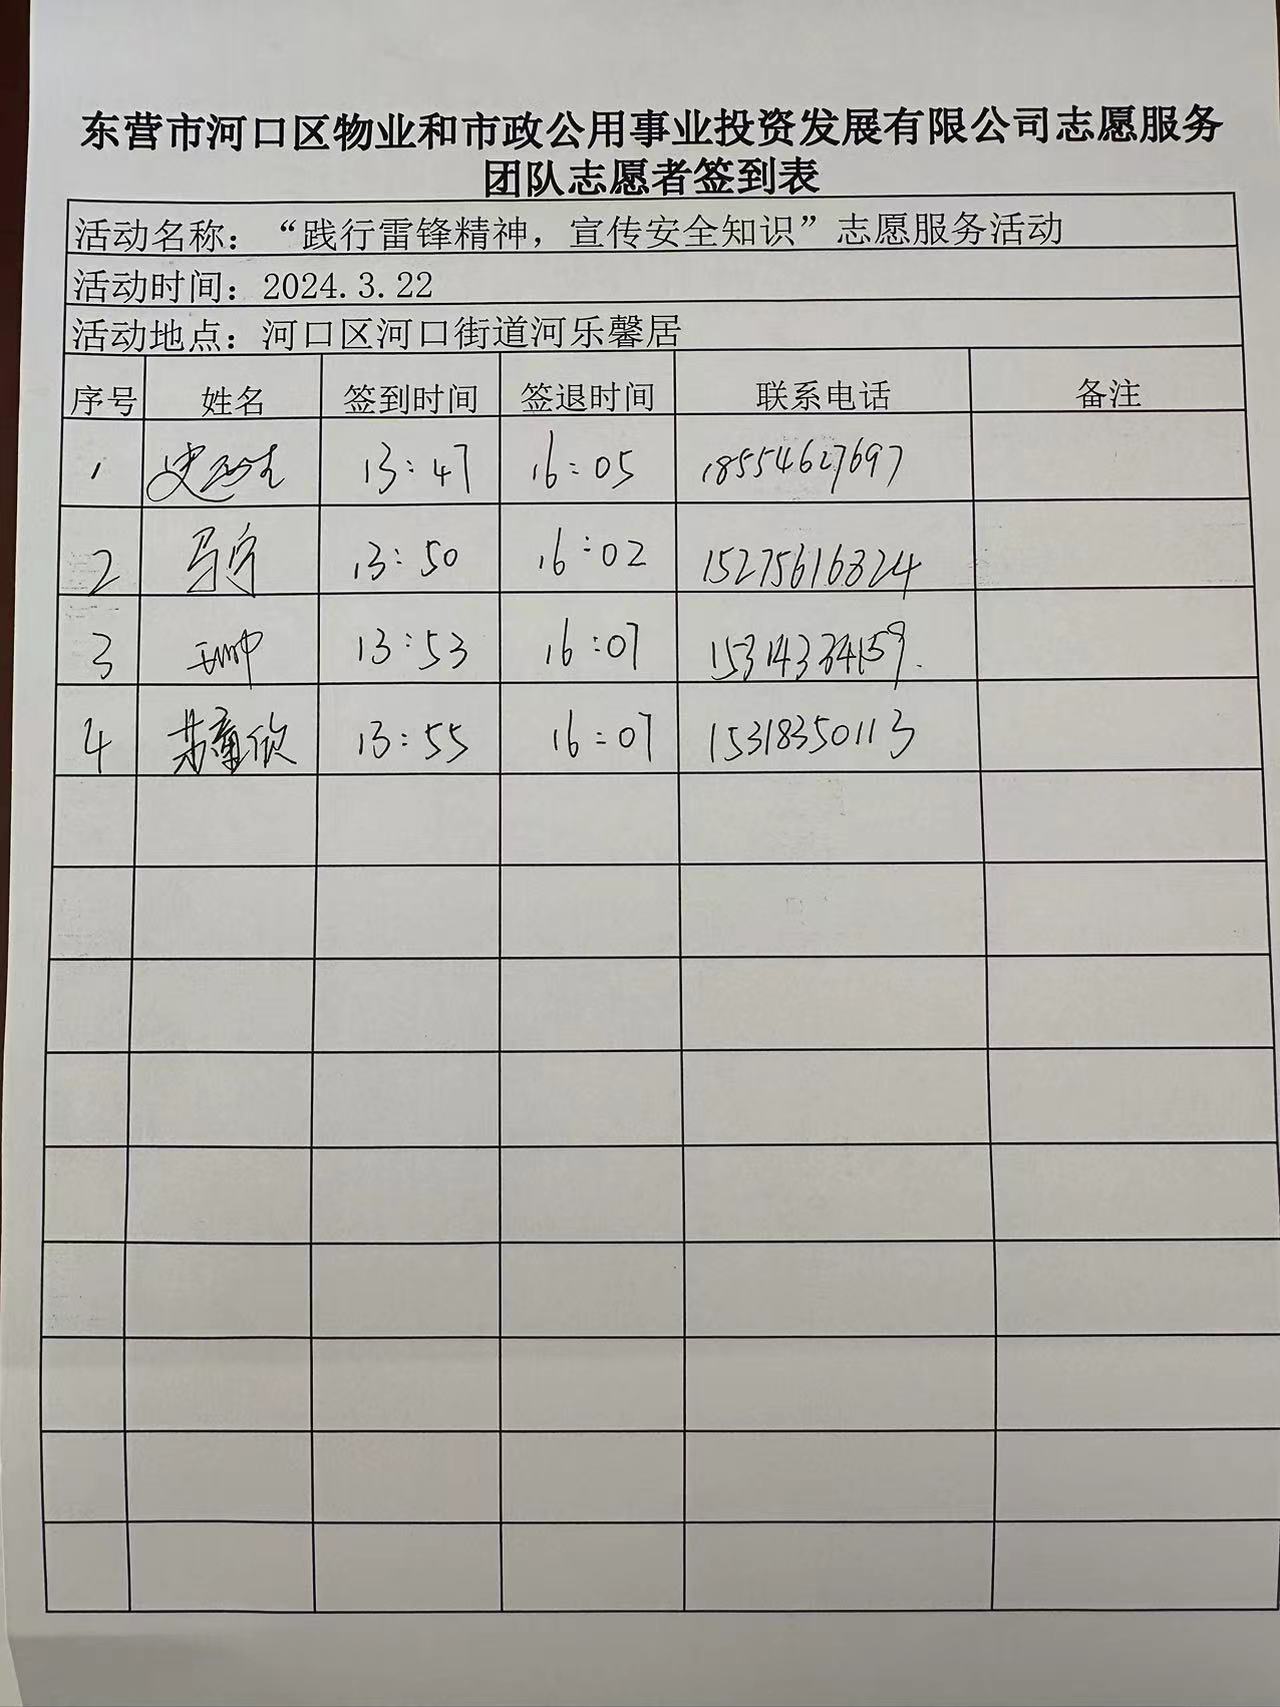 东营市河口区物业和市政公用事业投资发展有限公司志愿服务
团队志愿者签到表
活动名称：“践行雷锋精神，宣传安全知识”志愿服务活动
活动时间：2024.3.22
活动地点：河口区河口街道河乐馨居
序号 姓名 签到时间 签退时间 联系电话 备注
1 13:47 16:05 18554627697
2 马宇 13:50 16:02 15275616824
3 13:53 16:07 15314334159.
4 苏童欣 13:55 16:07 15318350113